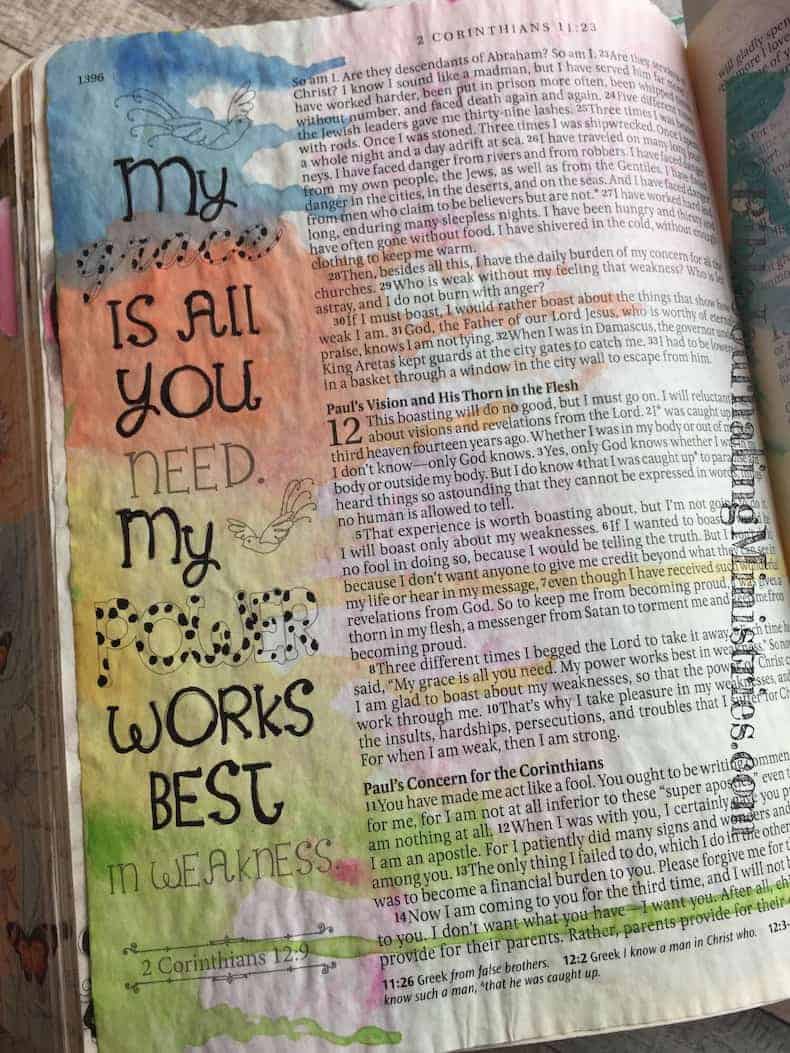 2 CORINTHIANS 11:23
1396
My
grace
IS All
you
NEED.
My
POWER
WORKS
BEST
IN WEAKNESS.
2 Corinthians 12:9
So am I. Are they descendants of Abraham? So am I. 23Are they servants
Christ? I know I sound like a madman, but I have served him far
have worked harder, been put in prison more often, been whipped
without number, and faced death again and again. 24Five different
the Jewish leaders gave me thirty-nine lashes. 25Three times I was
with rods. Once I was stoned. Three times I was shipwrecked. Once I
a whole night and a day adrift at sea. 26I have traveled on many long
neys. I have faced danger from rivers and from robbers. I have faced
from my own people, the Jews, as well as from the Gentiles. I have
danger in the cities, in the deserts, and on the seas. And I have faced danger
from men who claim to be believers but are not.* 27I have worked hard and
long, enduring many sleepless nights. I have been hungry and thirsty and
have often gone without food. I have shivered in the cold, without
clothing to keep me warm.
28Then, besides all this, I have the daily burden of my concern for all the
churches. 29Who is weak without my feeling that weakness? Who is
astray, and I do not burn with anger?
30If I must boast, I would rather boast about the things that show how
weak I am. 31God, the Father of our Lord Jesus, who is worthy of
praise, knows I am not lying. 32When I was in Damascus, the governor
King Aretas kept guards at the city gates to catch me. 33I had to be
in a basket through a window in the city wall to escape from him.
Paul's Vision and His Thorn in the Flesh
12 This boasting will do no good, but I must go on. I will
about visions and revelations from the Lord. 2I* was caught up
third heaven fourteen years ago. Whether I was in my body or out of
I don't know—only God knows. 3Yes, only God knows whether I
body or outside my body. But I do know 4that I was caught up* to
heard things so astounding that they cannot be expressed in words,
no human is allowed to tell.
5That experience is worth boasting about, but I'm not
I will boast only about my weaknesses. 6If I wanted to boast,
no fool in doing so, because I would be telling the truth. But I
because I don't want anyone to give me credit beyond what they
my life or hear in my message, 7even though I have received such
revelations from God. So to keep me from becoming proud,
thorn in my flesh, a messenger from Satan to torment me and keep me from
becoming proud.
8Three different times I begged the Lord to take it away.
said, "My grace is all you need. My power works best in weakness."
I am glad to boast about my weaknesses, so that the power of Christ
work through me. 10That's why I take pleasure in my weaknesses, and
the insults, hardships, persecutions, and troubles that I suffer for
For when I am weak, then I am strong.
Paul's Concern for the Corinthians
11You have made me act like a fool. You ought to be writing
for me, for I am not at all inferior to these "super apostles," even
am nothing at all. 12When I was with you, I certainly gave you
I am an apostle. For I patiently did many signs and wonders and
among you. 13The only thing I failed to do, which I do in the other
was to become a financial burden to you. Please forgive me for
14Now I am coming to you for the third time, and I will not
to you. I don't want what you have—I want you. After all,
provide for their parents. Rather, parents provide for their
11:26 Greek from false brothers. 12:2 Greek I know a man in Christ who. 12:3-
know such a man, 4that he was caught up.
will gladly spen